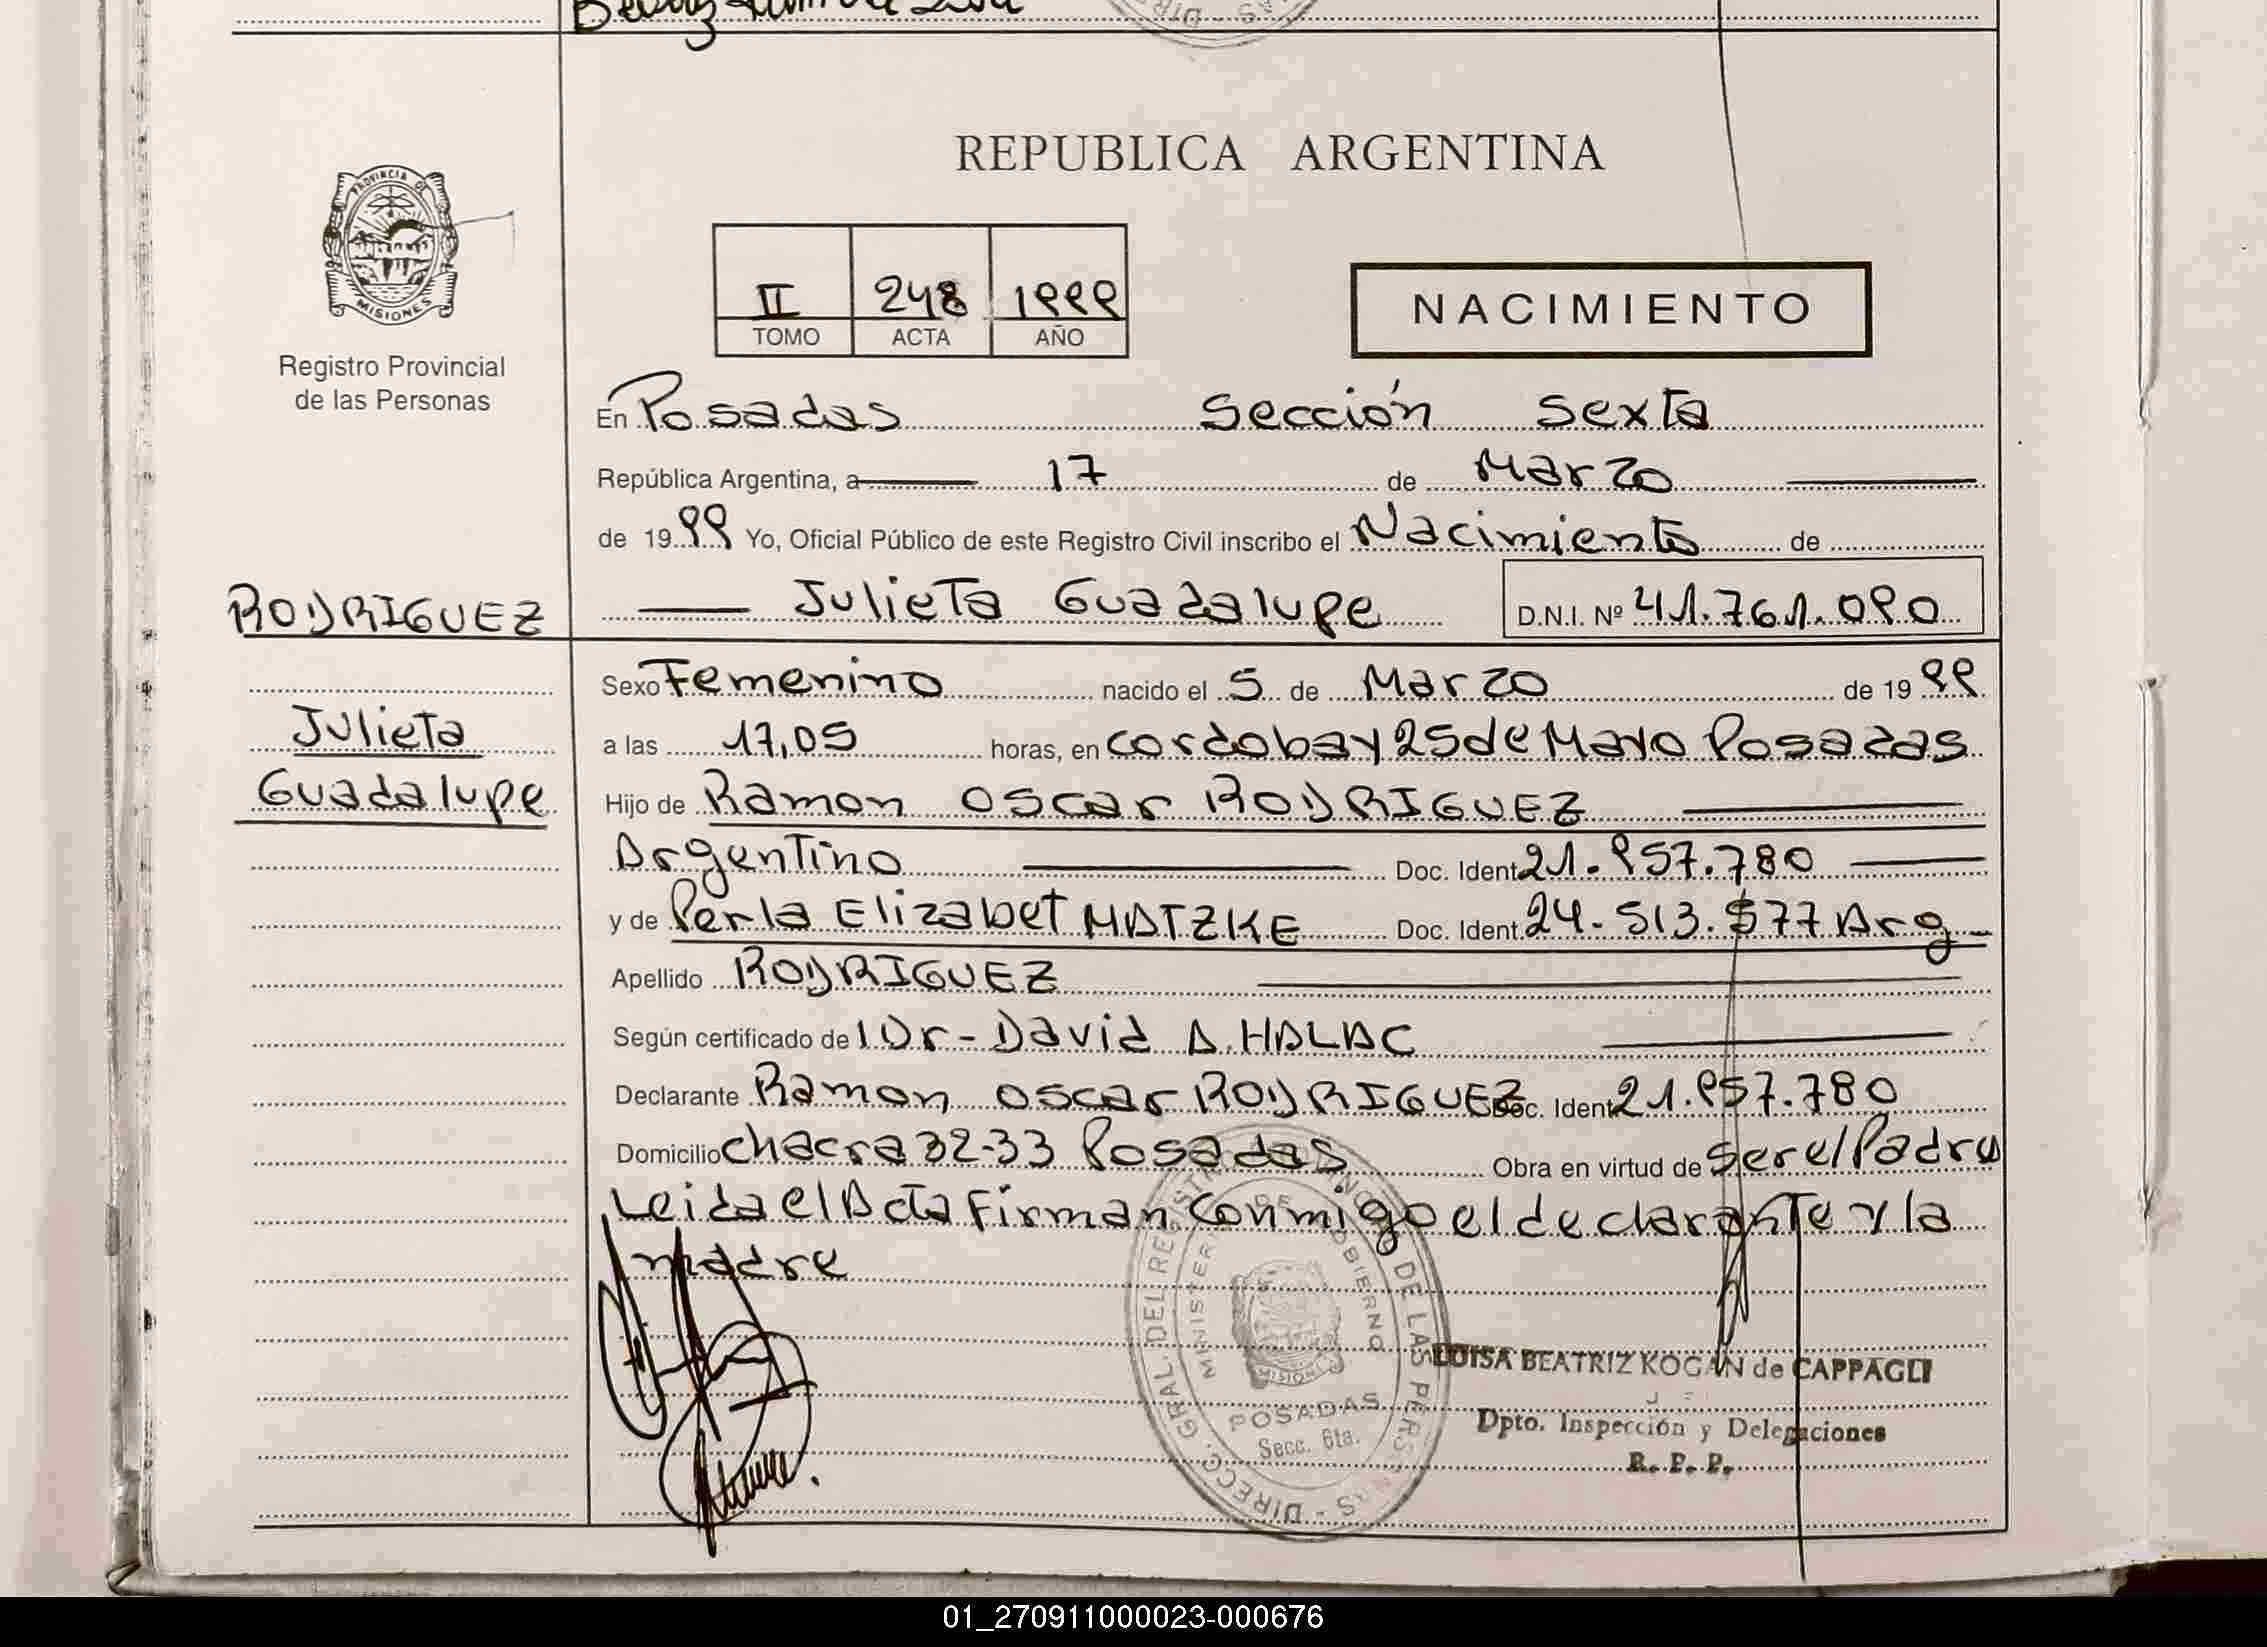 REPUBLICA ARGENTINA
PROVINCIA DE
MISIONES
Registro Provincial
de las Personas
II 248 1999
TOMO ACTA AÑO
NACIMIENTO
En Posadas Sección Sexta
República Argentina, a 17 de Marzo
de 1999 Yo, Oficial Público de este Registro Civil inscribo el Nacimiento de
RODRIGUEZ
Julieta Guadalupe D.N.I. Nº 41.761.090
Sexo Femenino nacido el 5 de Marzo de 1999
Julieta
a las 17,05 horas, en cordoba y 25 de Mayo Posadas
Guadalupe
Hijo de Ramon Oscar RODRIGUEZ
Argentino Doc. Ident. 21.957.780
y de Perla Elizabet MATZKE Doc. Ident. 24.513.577 Arg
Apellido RODRIGUEZ
Según certificado de Dr- David A. HALAC
Declarante Ramon Oscar RODRIGUEZ Doc. Ident. 21.957.780
Domicilio chacra 32-33 Posadas Obra en virtud de ser el Padre
Leida el Acta Firman conmigo el declarante y la
madre
DIRECC. GRAL. DEL REGISTRO DE LAS PERSONAS
MINISTERIO DE GOBIERNO
MISIONES
POSADAS
Secc. 6ta.
LUISA BEATRIZ KOGAN de CAPPAGLI
Dpto. Inspección y Delegaciones
R. P. P.
01_270911000023-000676